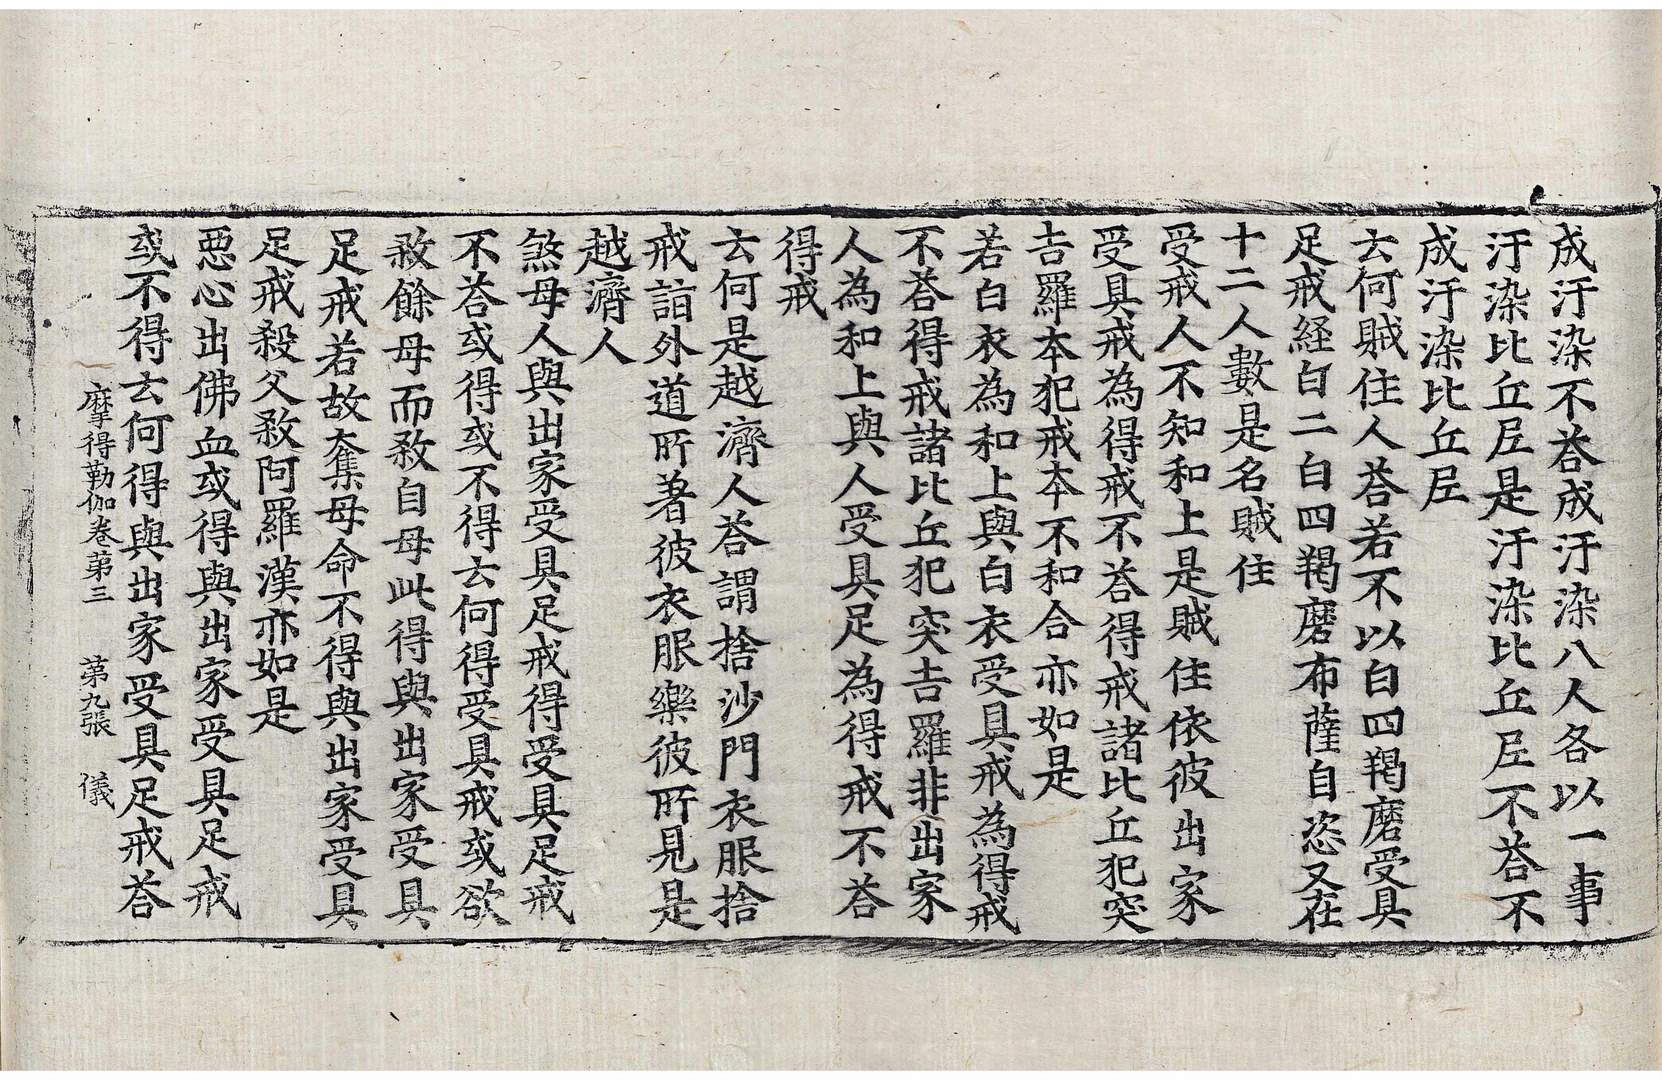 成汙染不荅成汙染八人各以一事
汙染比丘𡰱是汙染比丘𡰱不荅不
成汙染比丘𡰱
云何賊住人荅若不以白四羯磨受具
足戒経白二白四羯磨布薩自恣又在
十二人數是名賊住
受戒人不知和上是賊住依彼出家
受具戒為得戒不荅得戒諸比丘犯突
吉羅本犯戒本不和合亦如是
若白衣為和上與白衣受具戒為得戒
不荅得戒諸比丘犯突吉羅非出家
人為和上與人受具足為得戒不荅
得戒
云何是越濟人荅謂捨沙門衣服捨
戒詣外道所著彼衣服樂彼所見是
越濟人
煞母人與出家受具足戒得受具足戒
不荅或得或不得云何得受具戒或欲
煞餘母而煞自母此得與出家受具
足戒若故奪母命不得與出家受具
足戒殺父煞阿羅漢亦如是
惡心出佛血或得與出家受具足戒
或不得云何得與出家受具足戒荅
摩得勒伽卷第三 第九張 儀